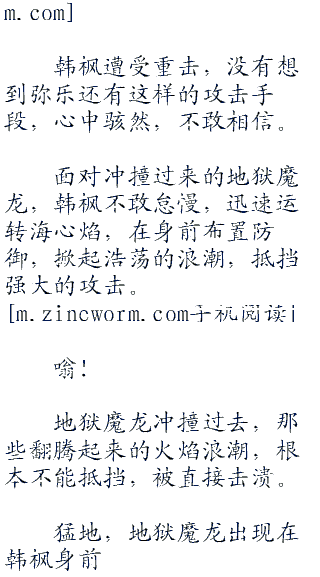 m.com]
韩枫遭受重击，没有想
到弥乐还有这样的攻击手
段，心中骇然，不敢相信。
面对冲撞过来的地狱魔
龙，韩枫不敢怠慢，迅速运
转海心焰，在身前布置防
御，掀起浩荡的浪潮，抵挡
强大的攻击。
[m.zincworm.com手机阅读|
嗡！
地狱魔龙冲撞过去，那
些翻腾起来的火焰浪潮，根
本不能抵挡，被直接击溃。
猛地，地狱魔龙出现在
韩枫身前